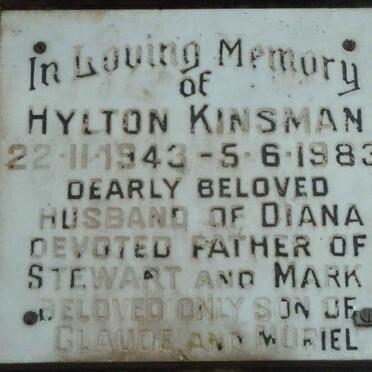 In Loving Memory
of
HYLTON KINSMAN
22·11·1943 - 5·6·1983
DEARLY BELOVED
HUSBAND OF DIANA
DEVOTED FATHER OF
STEWART AND MARK
BELOVED ONLY SON OF
CLAUDE AND MURIEL